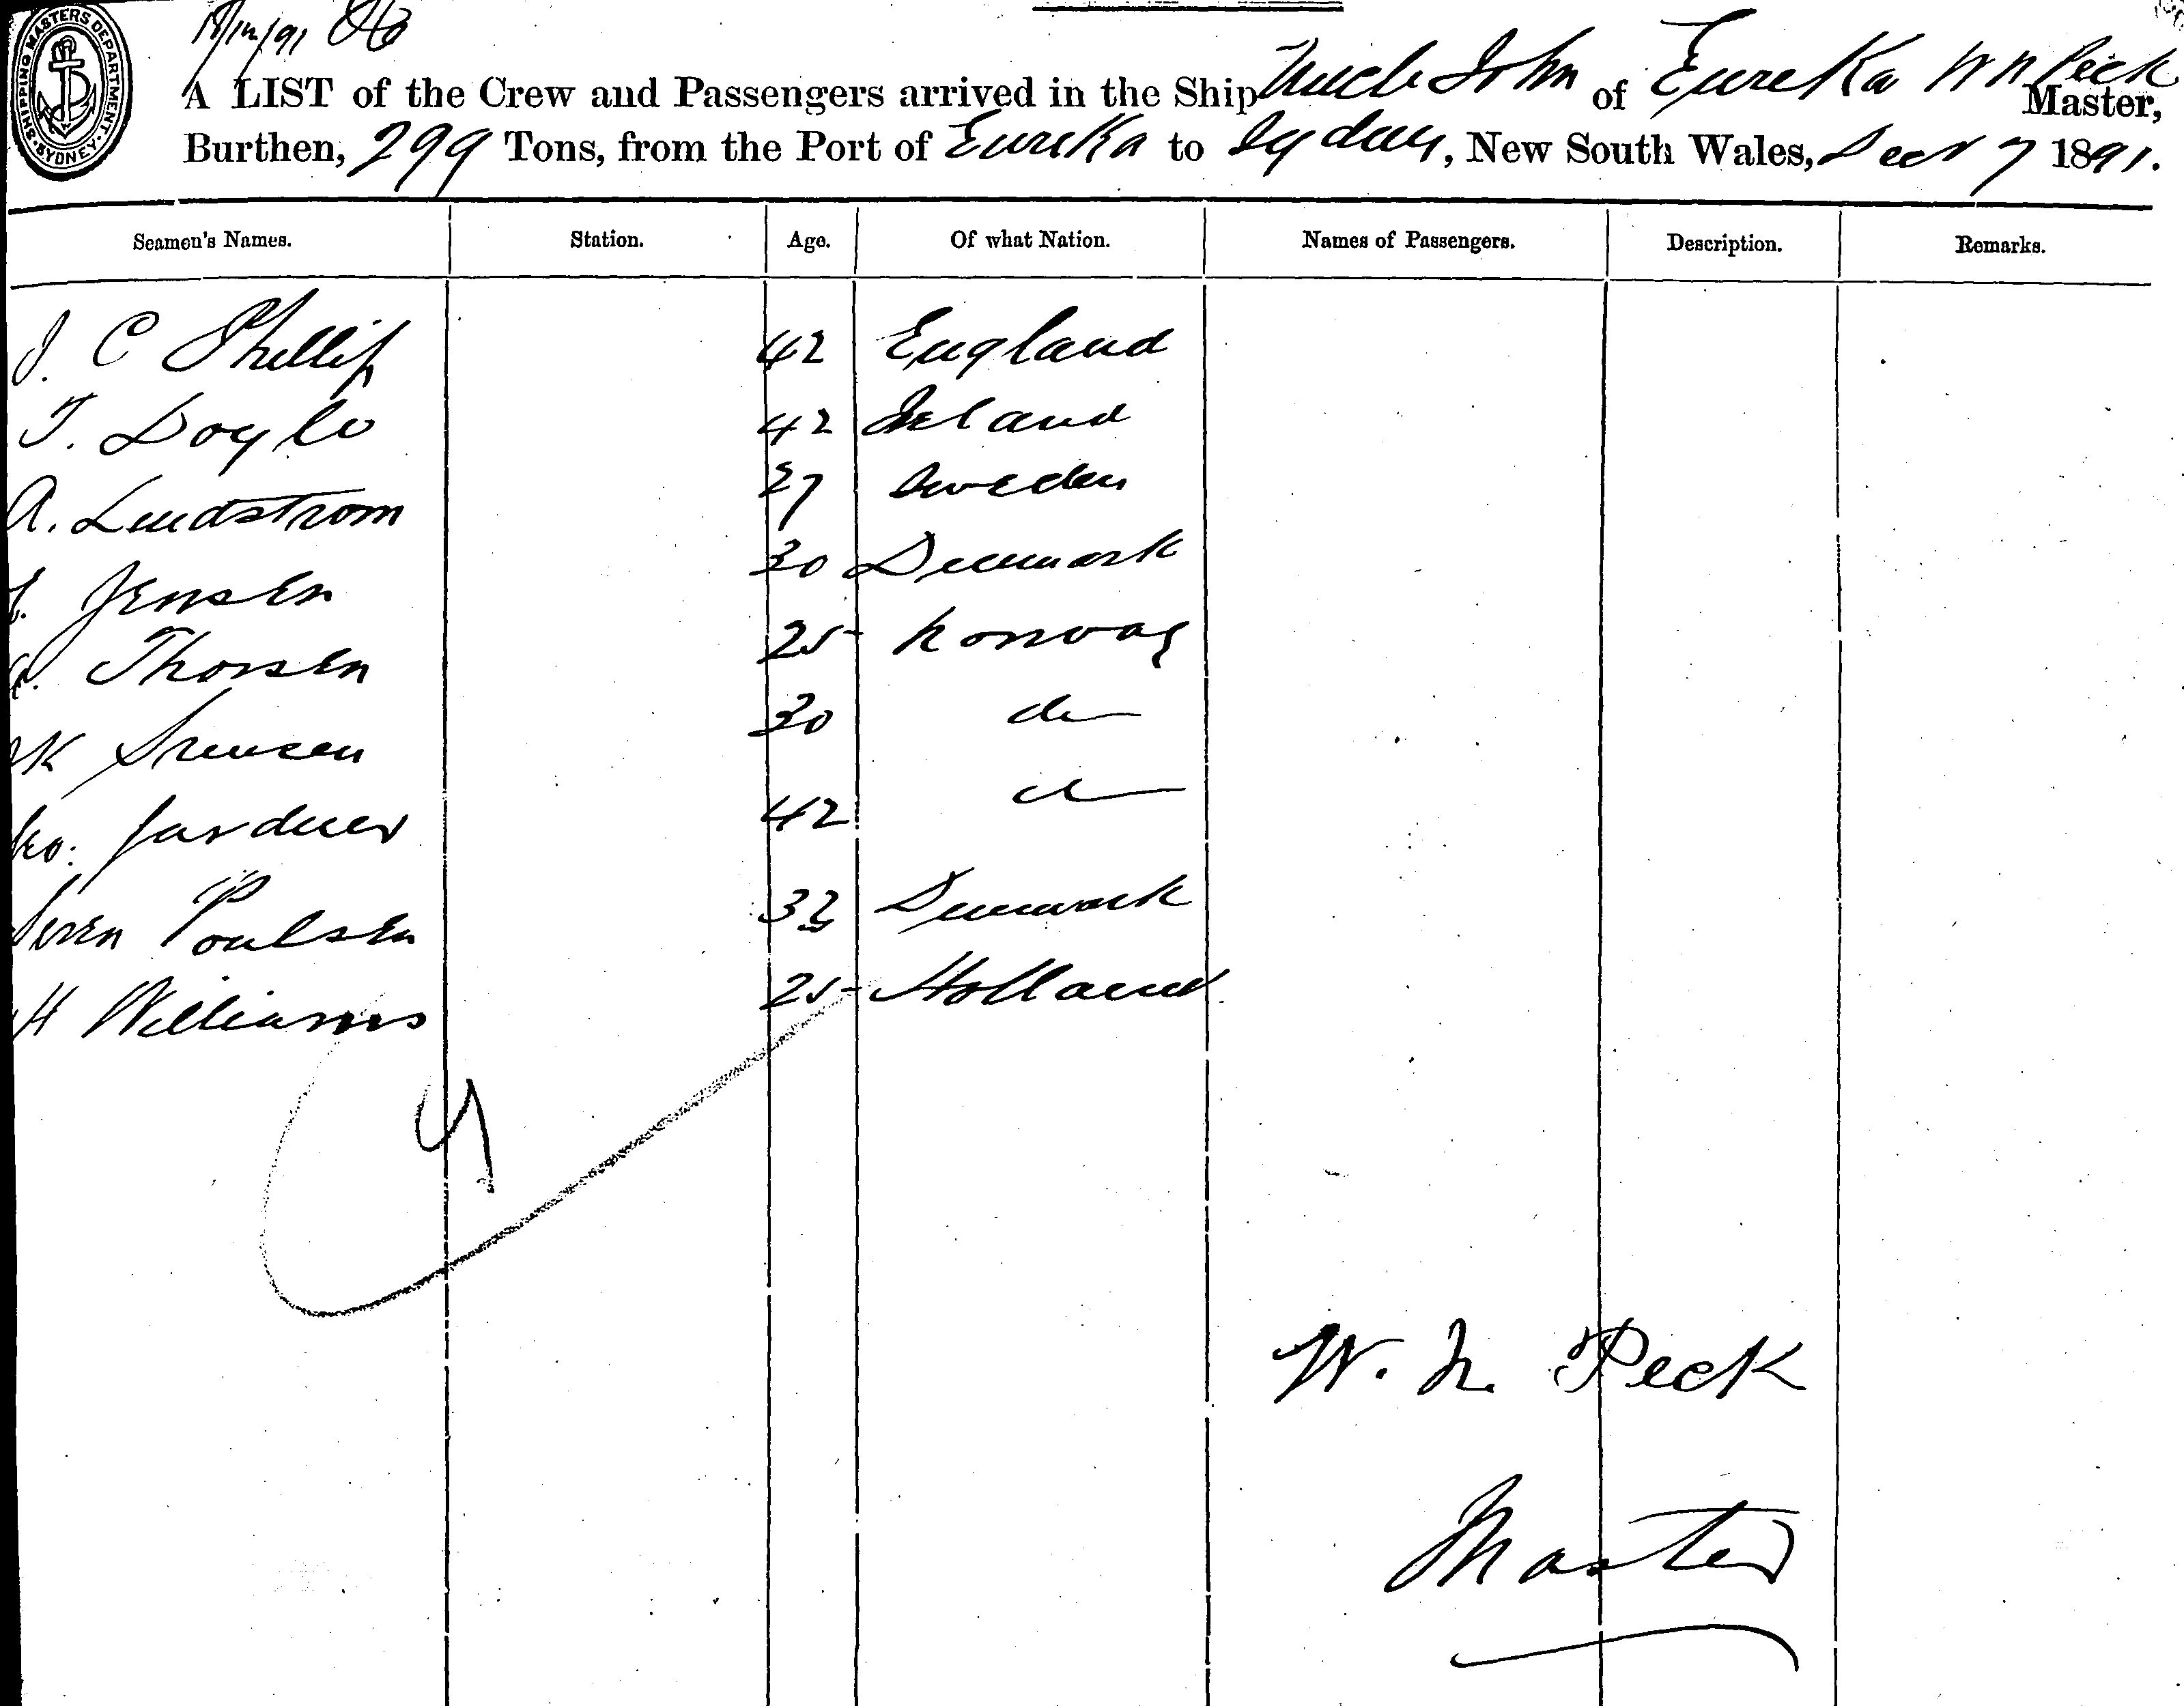 SHIPPING MASTERS DEPARTMENT. SYDNEY.
A LIST of the Crew and Passengers arrived in the Ship Uncle John of Eureka W N Peck Master,
Burthen, 299 Tons, from the Port of Eureka to Sydney, New South Wales, Decr 7 1891.
Seamen's Names. Station. Age. Of what Nation. Names of Passengers. Description. Remarks.
J. C Phillip 42 England
T. Doyle 42 Ireland
A. Lindstrom 27 Sweden
Jensen 30 Denmark
Thorsen 25 Norway
K 30 do
Geo. Gardner 42 do
Soren Poulsen Denmark
H Williams 25 Holland
9
W. N. Peck
Master